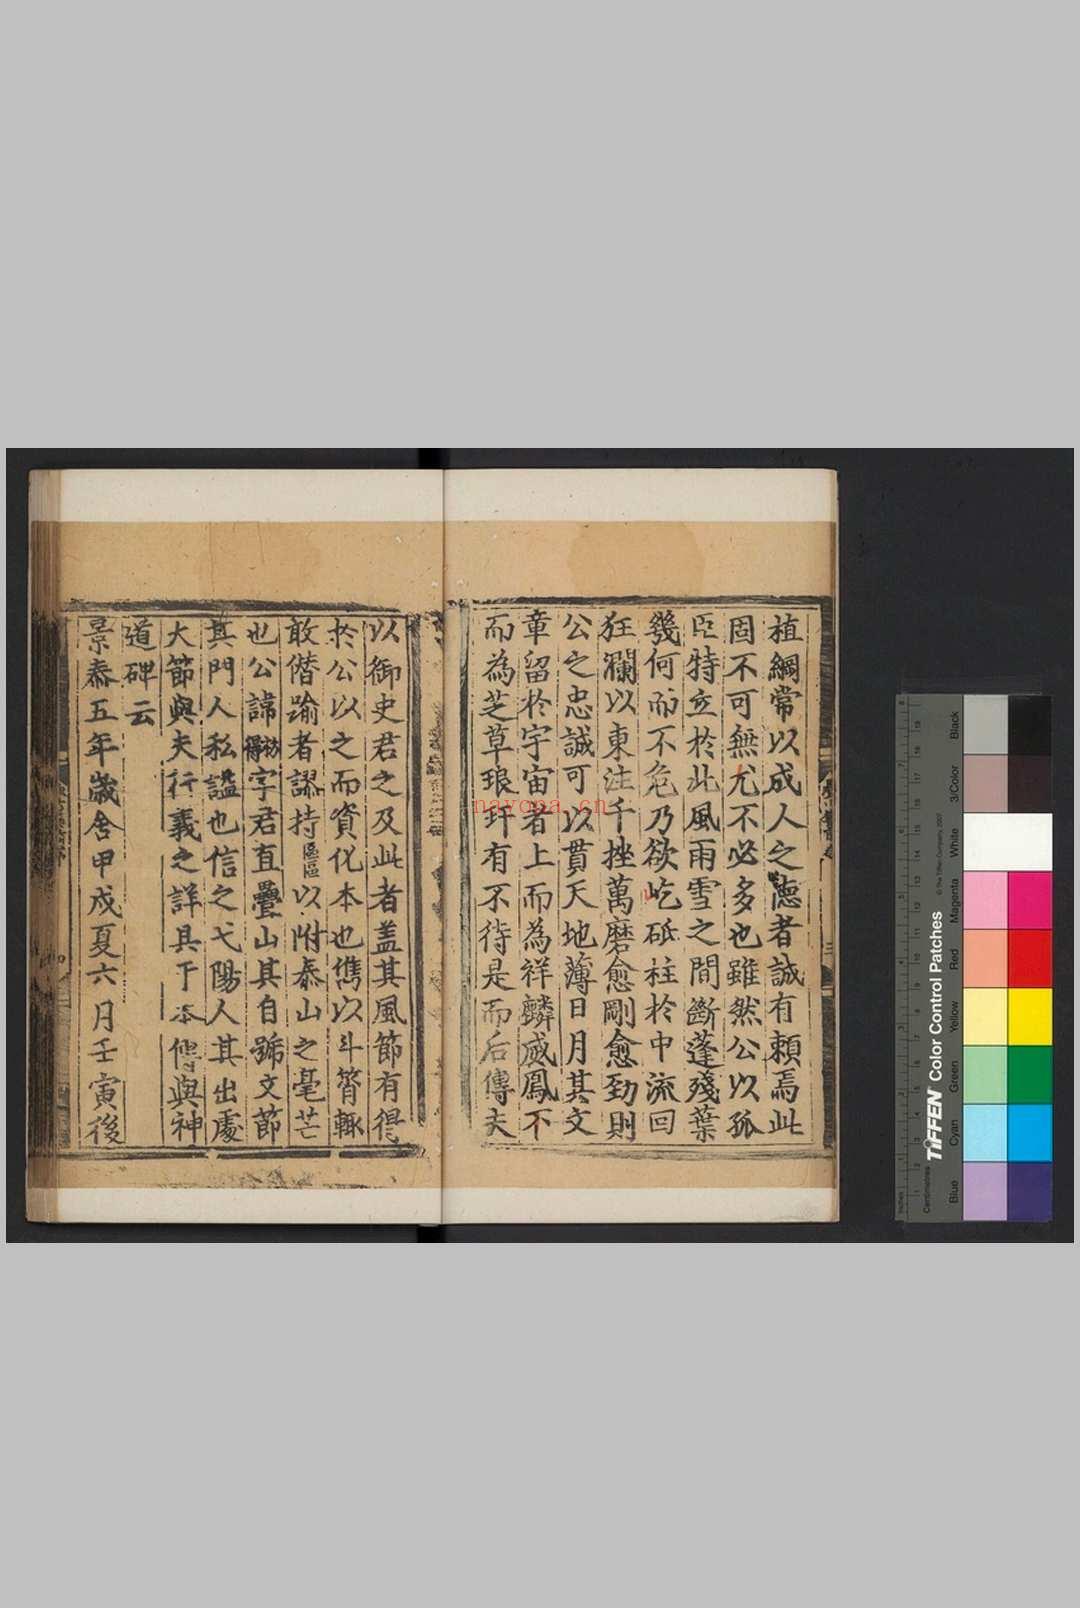 植綱常以成人之德者誠有頼焉此
固不可無尤不必多也雖然公以孤
臣特立於此風雨雪之間斷蓬殘葉
幾何而不危乃欲屹砥柱於中流回
狂瀾以東注千挫萬磨愈剛愈勁則
公之忠誠可以貫天地薄日月其文
章留於宇宙者上而為祥麟威鳳不
而為芝草琅玕有不待是而后傳夫
以御史君之及此者盖其風節有得
於公以之而資化本也雋以斗筲輙
敢僣踰者謬持區區以附泰山之毫芒
也公諱枋得字君直疊山其自號文節
其門人私謚也信之弋陽人其出處
大節與夫行義之詳具于本傳與神
道碑云
景泰五年歲舍甲戍夏六月壬寅後
nayona.cn
TIFFEN Color Control Patches
© The Tiffen Company, 2007
Blue Cyan Green Yellow Red Magenta White 3/Color Black
Centimetres
Inches